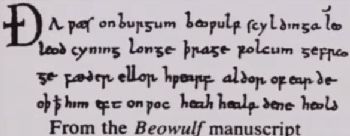 ÐA ƿæs on burgum beoƿulf scyldinga
leod cyning longe þrage folcum gefræ
ge fæder ellor hƿearf aldor of earde
oþꝥ him eft onƿoc heah healf dene heold
From the Beowulf manuscript